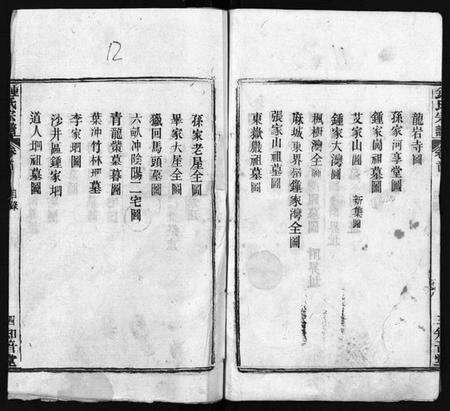 龍岩寺圖
孫家河享堂圖
鍾家崗祖墓圖
艾家山圖 新集圖
鍾家大灣圖
楓樹灣全圖
麻城東界嶺鍾家灣全圖
張家山祖墓圖
東嶽嚴祖墓圖
12
孫家老屋全圖
畢家大屋全圖
獵回馬頭墓圖
六畝冲陰陽二宅圖
青龍嘴墓圖
葉冲竹林墓
李家圖
沙井區鍾家圖
道人祖墓圖
鍾氏宗譜
知音堂